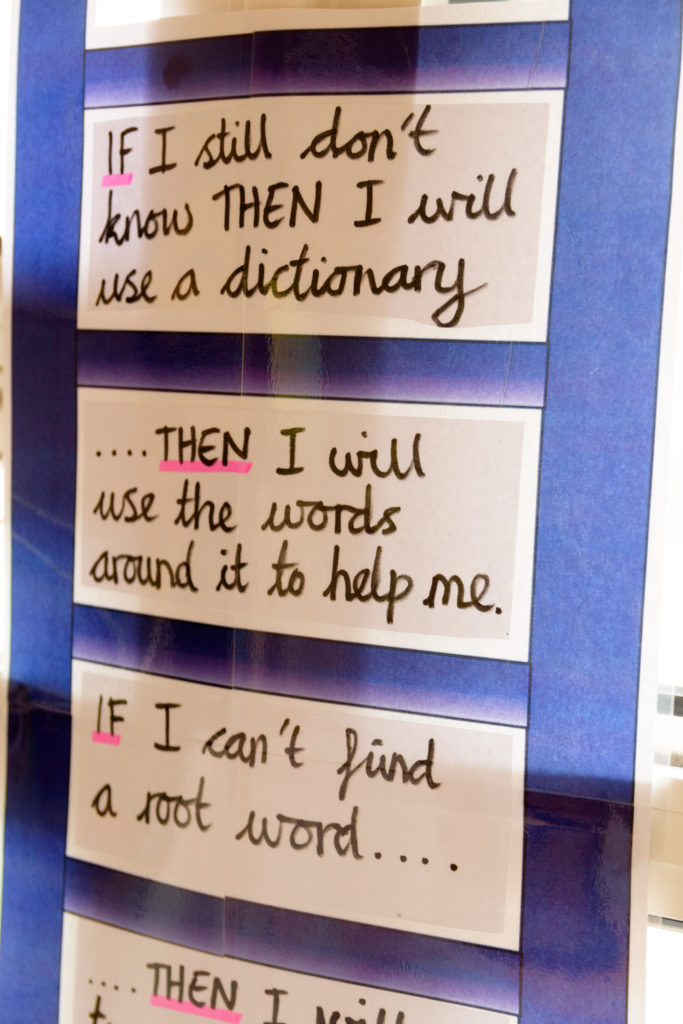 IF I still don't
know THEN I will
use a dictionary
....THEN I will
use the words
around it to help me.
IF I can't find
a root word....
....THEN I will